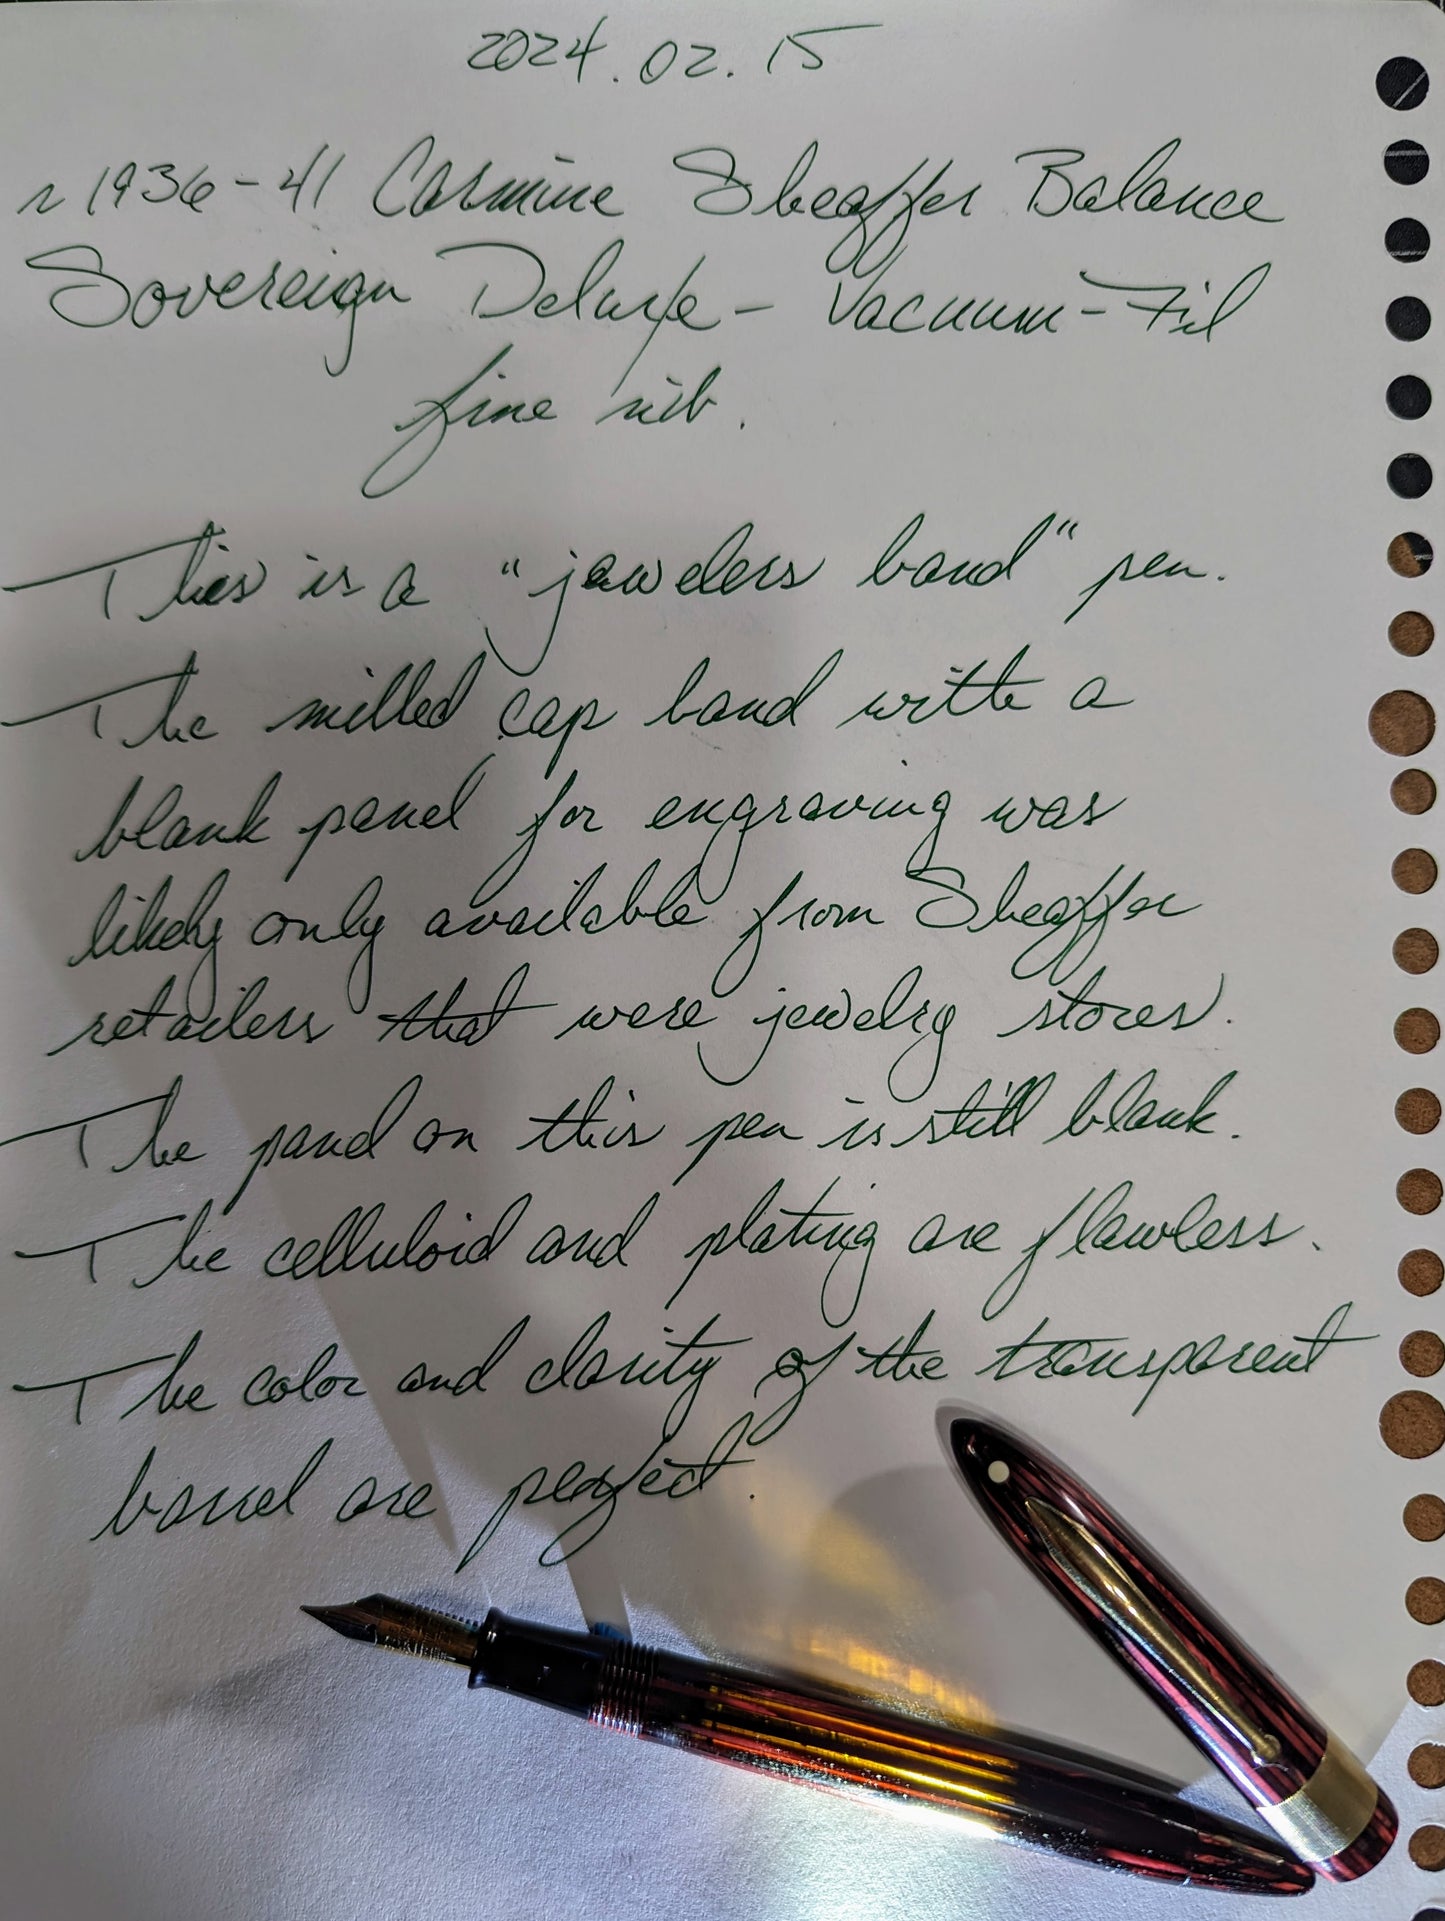 2024.02.15
~1936-41 Carmine Sheaffer Balance
Sovereign Deluxe - Vacuum-Fil
fine nib.
This is a "jewelers band" pen.
The milled cap band with a
blank panel for engraving was
likely only available from Sheaffer
retailers that were jewelry stores.
The panel on this pen is still blank.
The celluloid and plating are flawless.
The color and clarity of the transparent
barrel are perfect.